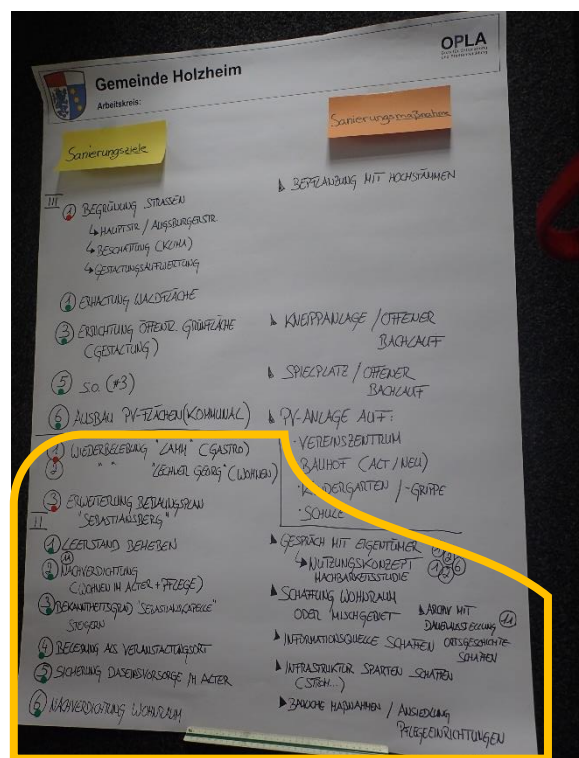 Gemeinde Holzheim
Arbeitskreis:
OPLA
Sanierungsziele
Sanierungsmaßnahmen
III
1 BEGRÜNUNG STRASSEN
↳ HAUPTSTR / AUGSBURGERSTR
↳ BESCHATTUNG (KLIMA)
↳ GESTALTUNGSAUFWERTUNG
BEPFLANZUNG MIT HOCHSTÄMMEN
1 ERHALTUNG WALDFLÄCHE
3 ERRICHTUNG ÖFFENTL. GRÜNFLÄCHE
(GESTALTUNG)
KNEIPPANLAGE / OFFENER
BACHLAUF
5 S.O. (#3)
SPIELPLATZ / OFFENER
BACHLAUF
6 AUSBAU PV-FLÄCHEN (KOMMUNAL)
PV-ANLAGE AUF:
· VEREINSZENTRUM
· BAUHOF (ALT / NEU)
· KINDERGARTEN / -GRIPPE
· SCHULE
1 WIEDERBELEBUNG "LAMM" (GASTRO)
2 " " "LECHNER GEORG" (WOHNEN)
3 ERWEITERUNG BEBAUUNGSPLAN
"SEBASTIANSBERG"
II
1 LEERSTAND BEHEBEN
2 NACHVERDICHTUNG
(WOHNEN IM ALTER + PFLEGE)
3 BEKANNTHEITSGRAD "SEBASTIANSKAPELLE"
STEIGERN
4 BELEBUNG ALS VERANSTALTUNGSORT
5 SICHERUNG DASEINSVORSORGE IM ALTER
6 NACHVERDICHTUNG WOHNRAUM
GESPRÄCH MIT EIGENTÜMER
↳ NUTZUNGSKONZEPT
MACHBARKEITSSTUDIE
1 2 6
SCHAFFUNG WOHNRAUM
ODER MISCHGEBIET
ARCHIV MIT
DAUERAUSSTELLUNG
ORTSGESCHICHTE
SCHAFFEN
INFORMATIONSQUELLE SCHAFFEN
INFRASTRUKTUR SPARTEN SCHAFFEN
(STROM...)
BAULICHE MAßNAHMEN / ANSIEDLUNG
PFLEGEEINRICHTUNGEN